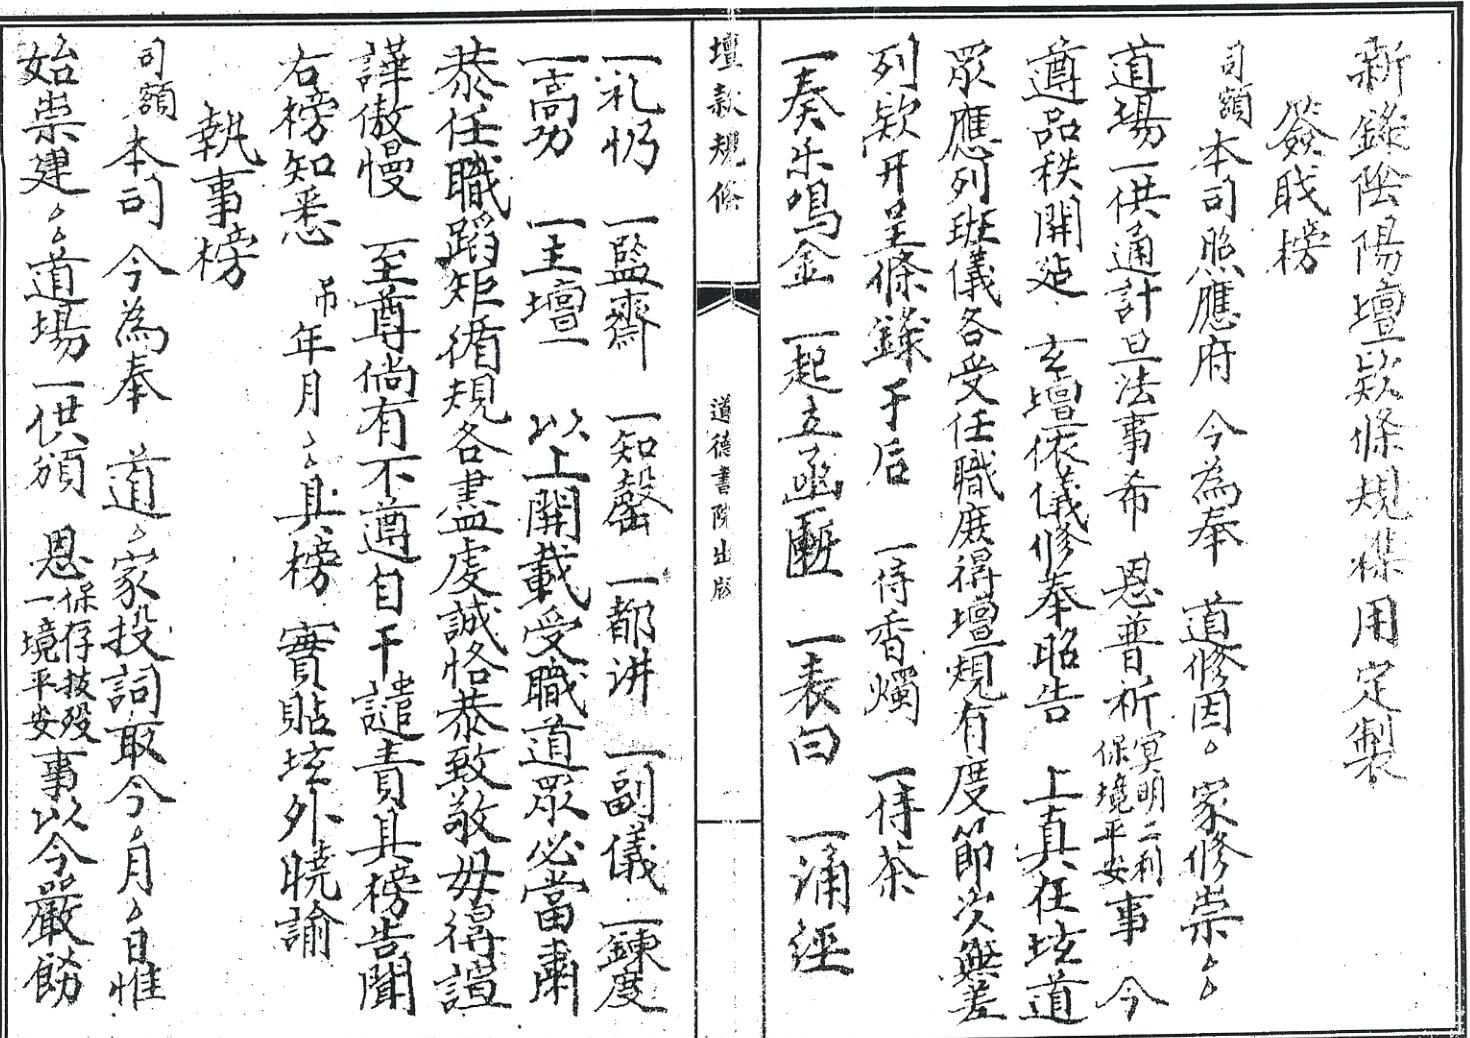 新錄陰陽壇款條規様用定製
簽職榜
司額本司照應府 今為奉 道修因〻家修崇〻〻
道場一供通計旦法事希 恩普祈冥明二利保境平安事 今
遵品秩開筵 玄壇依儀修奉昭告 上真在玆道
眾應列班儀各受任職庶得壇規有度節次無差
列欵开呈條錄于后 一侍香燭 一侍茶
一奏乐鳴金 一起立 一表白 一涌經
壇款規條
道德書院出版
一礼忏 一監齋 一知磬 一都讲 一副儀 一鍊度
一高功 一主壇 以上開載受職道眾必當肅
恭任職蹈矩循規各盡虔誠恪恭致敬毋得諠
譁傲慢 至尊倘有不遵自干譴責具榜告聞
右榜知悉 吊 年月〻〻具榜 實貼玆外曉諭
執事榜
司額本司 今為奉 道〻家投詞取今〻月〻日惟
始崇建〻〻道場一供頒 恩保存拔殁一境平安事以今嚴飭